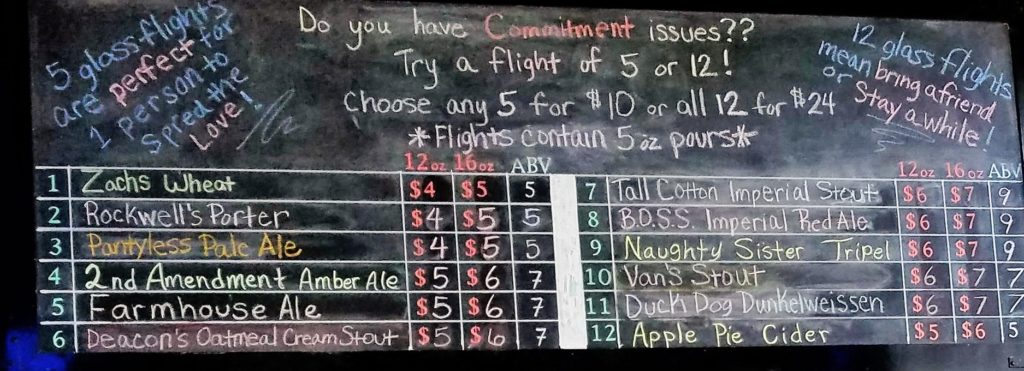 5 glass flights
are perfect for
1 person to
Spred the
Love!
Do you have Commitment issues??
Try a flight of 5 or 12!
Choose any 5 for $10 or all 12 for $24
*Flights contain 5 oz pours*
12 glass flights
mean bring a friend
or Stay a while!
12 oz 16 oz ABV
1 Zachs Wheat $4 $5 5
2 Rockwell's Porter $4 $5 5
3 Pantyless Pale Ale $4 $5 5
4 2nd Amendment Amber Ale $5 $6 7
5 Farmhouse Ale $5 $6 7
6 Deacon's Oatmeal Cream Stout $5 $6 7
12 oz 16 oz ABV
7 Tall Cotton Imperial Stout $6 $7 9
8 B.O.S.S. Imperial Red Ale $6 $7 9
9 Naughty Sister Tripel $6 $7 9
10 Van's Stout $6 $7 7
11 Duck Dog Dunkelweissen $6 $7 7
12 Apple Pie Cider $5 $6 5